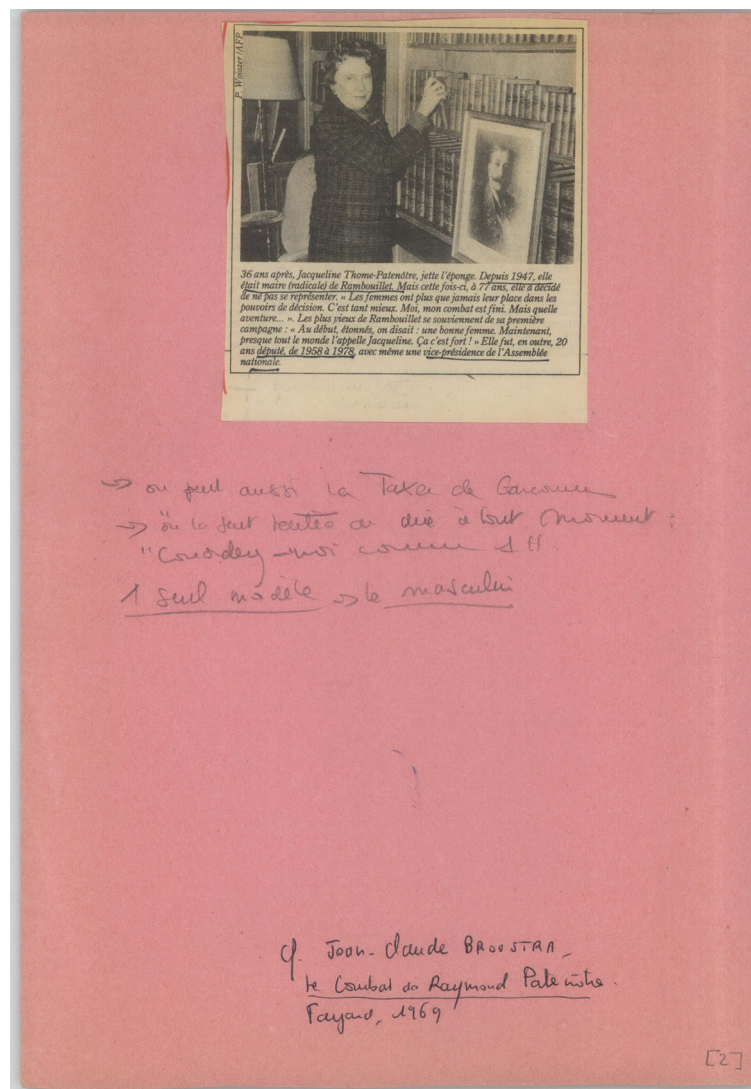 P. Wouzer/AFP
36 ans après, Jacqueline Thome-Patenôtre, jette l'éponge. Depuis 1947, elle
était maire (radicale) de Rambouillet. Mais cette fois-ci, à 77 ans, elle a décidé
de ne pas se représenter. « Les femmes ont plus que jamais leur place dans les
pouvoirs de décision. C'est tant mieux. Moi, mon combat est fini. Mais quelle
aventure... ». Les plus vieux de Rambouillet se souviennent de sa première
campagne : « Au début, étonnés, on disait : une bonne femme. Maintenant,
presque tout le monde l'appelle Jacqueline. Ça c'est fort ! » Elle fut, en outre, 20
ans député, de 1958 à 1978, avec même une vice-présidence de l'Assemblée
nationale.
→ on peut aussi la Taxer de
→ on la sent tentée de dire à tout moment :
-moi comme 1 H
1 seul modèle → le masculin
cf. Jean-Claude BROUSTRA_
Le Combat de Raymond Patenôtre.
Fayard, 1969
[2]